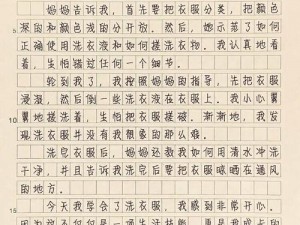 妈妈告诉我，首先要把衣服分类，把颜色
深的和颜色浅的分开。然后，她示范了如何
5
正确使用洗衣液和如何搓洗衣物。我认真地看
着，生怕错过任何一个细节。
轮到我了，我按照妈妈的指导，先把衣服
浸湿，然后倒一些洗衣液在衣服上。我小心翼
10
翼地搓洗着，生怕把衣服搓破。渐渐地，我发
现洗衣服并没有我想象的那么难。
洗完衣服后，妈妈还教我如何用清水冲洗
干净，并且告诉我洗完后要把衣服晾晒在通风
的地方。
15
今天我学会了洗衣服，我感到非常开心。